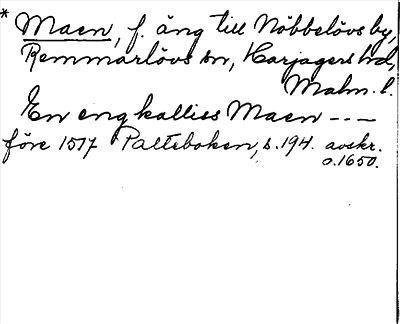 * Maen, f. äng till Nöbbelövs by,
Remmarlövs sn, Harjagers hd,
Malm. l.
En eng kalliss Maen ---
före 1517 Palteboken, s. 194. avskr.
o. 1650.